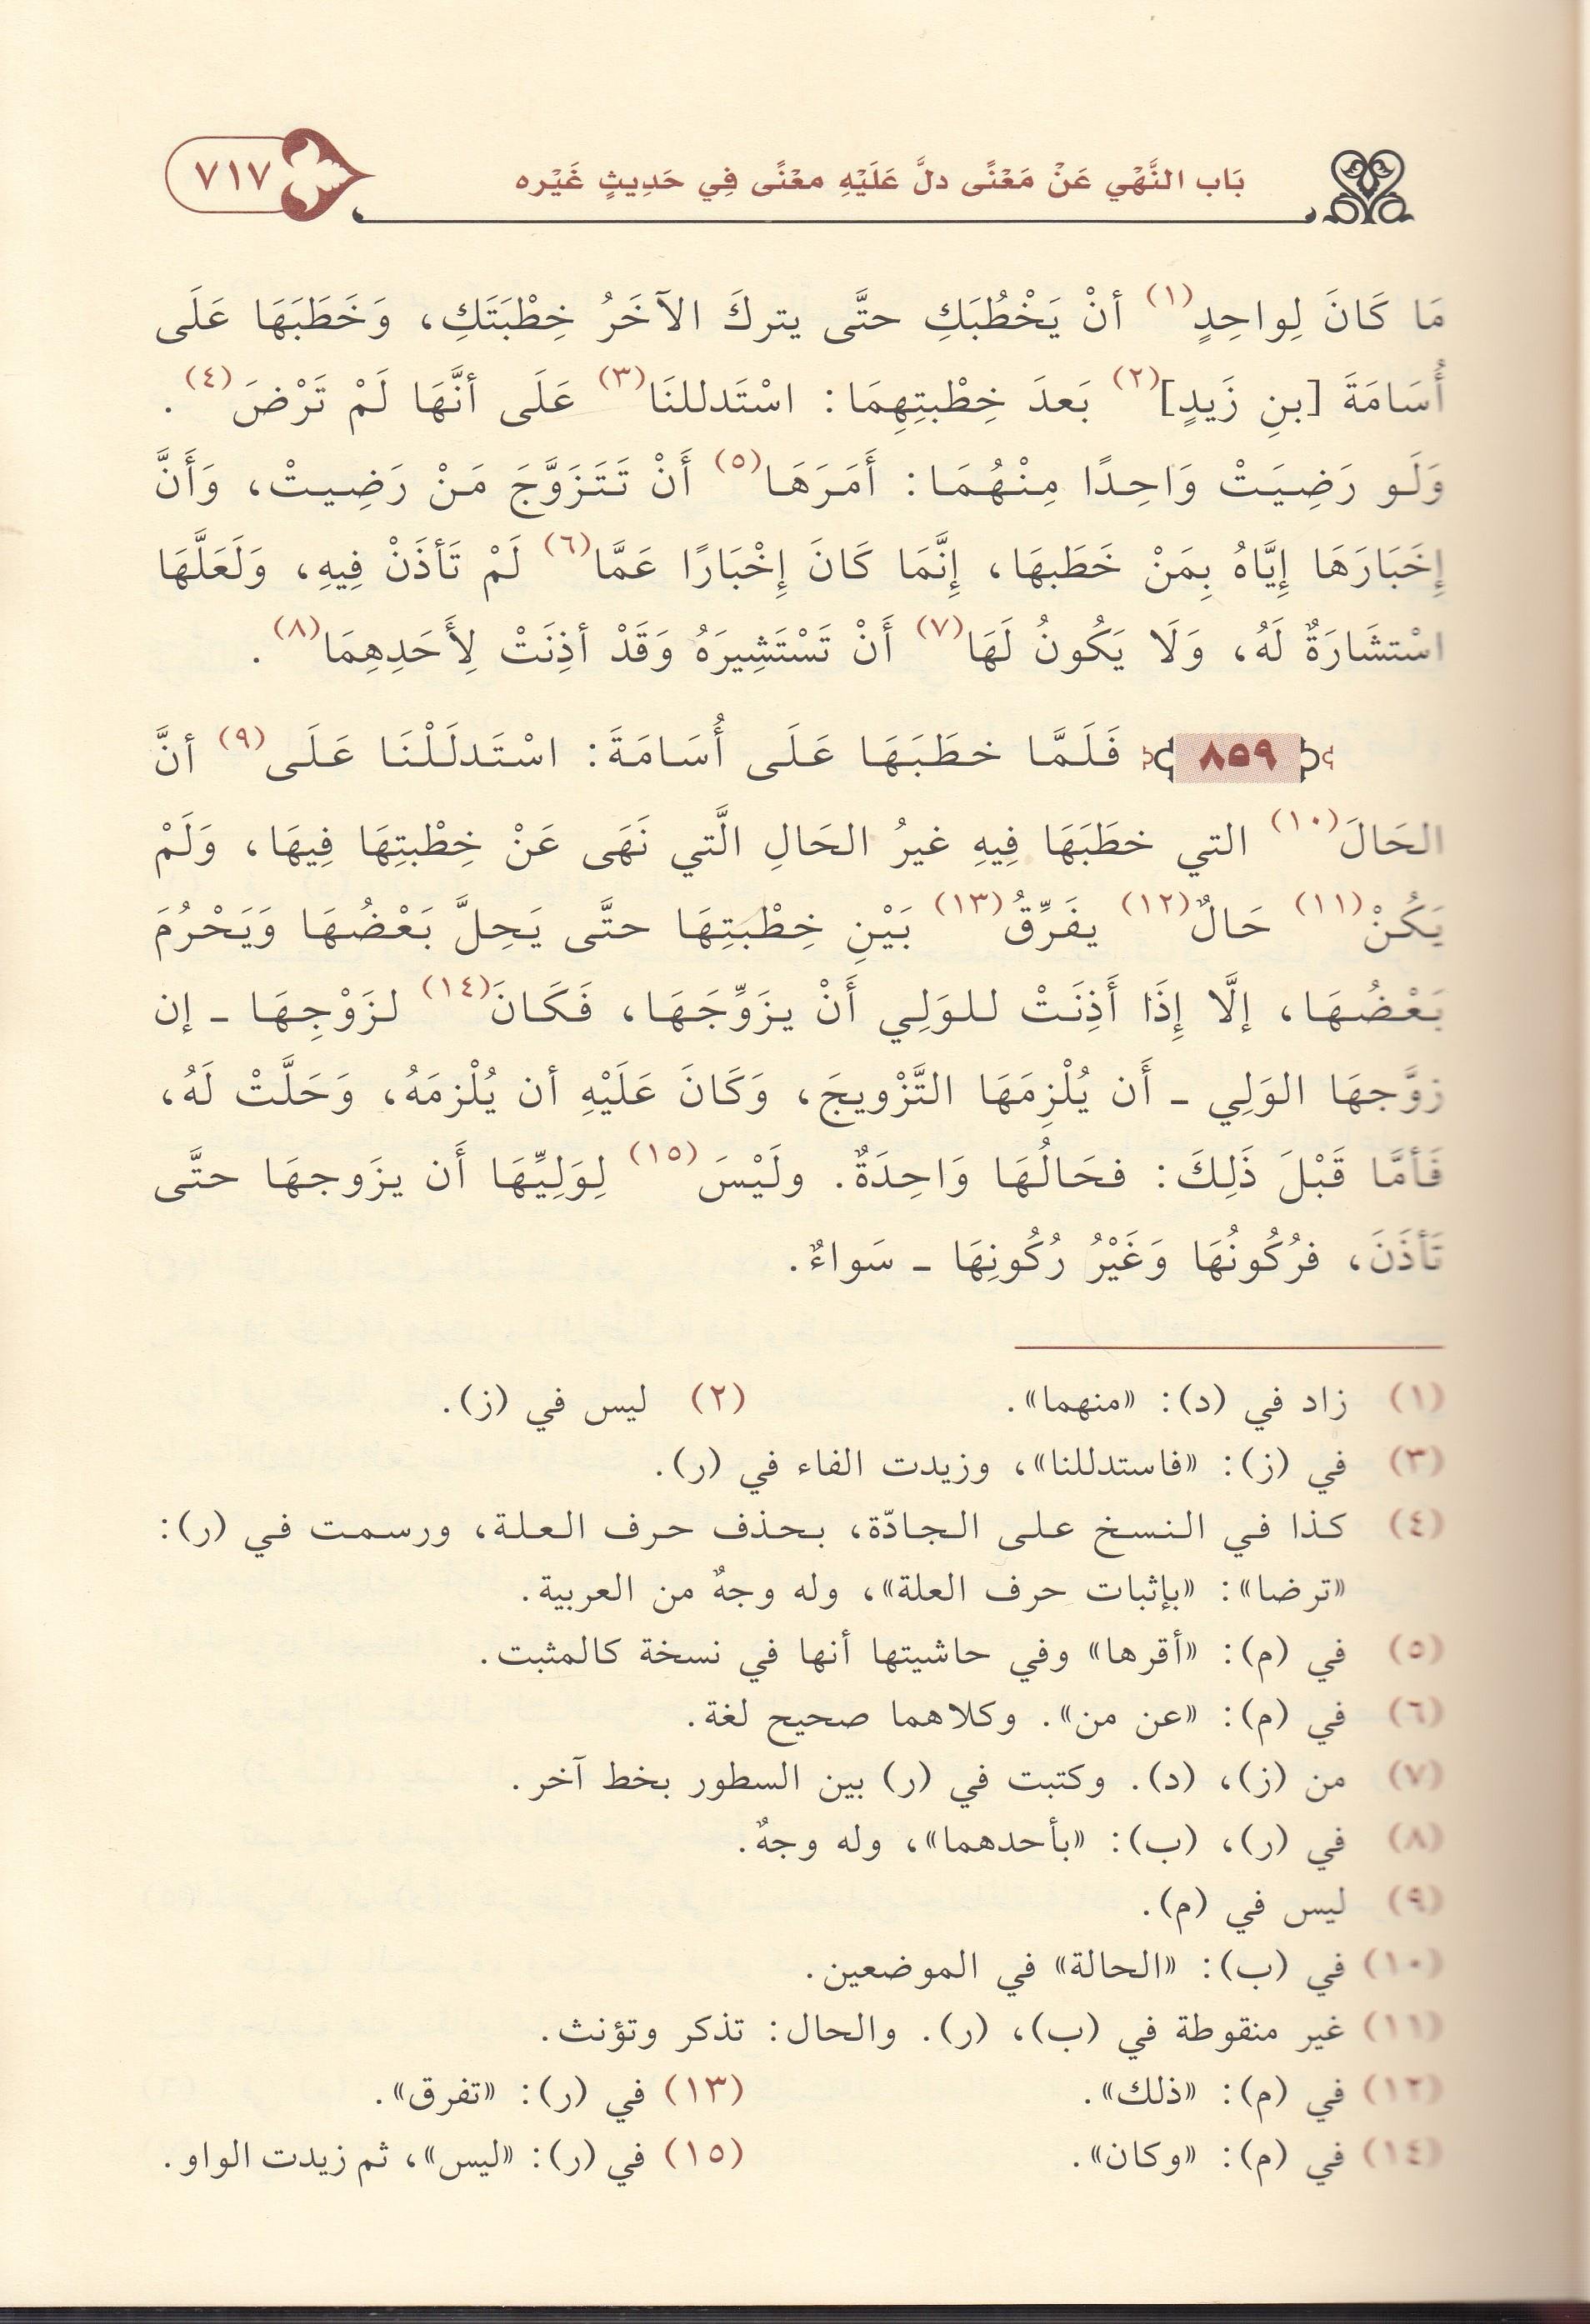 بَاب النَّهْي عَنْ مَعْنًى دلَّ عَلَيْهِ معْنًى فِي حَدِيثٍ غَيْره
٧١٧
مَا كَانَ لِواحِدٍ(١) أنْ يَخْطُبَكِ حتَّى يتركَ الآخَرُ خِطْبَتَكِ، وَخَطَبَهَا عَلَى
أُسَامَةَ [بنِ زَيدٍ](٢) بَعدَ خِطْبتِهِمَا: اسْتَدللنَا(٣) عَلَى أنَّهَا لَمْ تَرْضَ(٤).
وَلَو رَضِيَتْ وَاحِدًا مِنْهُمَا: أَمَرَهَا(٥) أَنْ تَتَزَوَّجَ مَنْ رَضِيتْ، وَأَنَّ
إِخَبَارَهَا إِيَّاهُ بِمَنْ خَطَبهَا، إِنَّمَا كَانَ إِخْبَارًا عَمَّا(٦) لَمْ تَأذَنْ فِيهِ، وَلَعَلَّهَا
اسْتشَارَةٌ لَهُ، وَلَا يَكُونُ لَهَا(٧) أَنْ تَسْتَشِيرَهُ وَقَدْ أذِنَتْ لِأَحَدِهِمَا(٨).
٨٥٩ فَلَمَّا خطَبَهَا عَلَى أُسَامَةَ: اسْتَدلَلْنَا عَلَى(٩) أنَّ
الحَالَ(١٠) التي خطَبَهَا فِيهِ غيرُ الحَالِ الَّتي نَهَى عَنْ خِطْبتِهَا فِيهَا، وَلَمْ
يَكُنْ(١١) حَالٌ(١٢) يفَرِّقُ(١٣) بَيْنِ خِطْبَتِهَا حتَّى يَحِلَّ بَعْضُهَا وَيَحْرُمَ
بَعْضُهَا، إلَّا إِذَا أَذِنَتْ للوَلِي أَنْ يزَوِّجَهَا، فَكَانَ(١٤) لزَوْجِهَا ـ إن
زوَّجهَا الوَلِي ـ أَن يُلْزِمَهَا التَّزْويجَ، وَكَانَ عَلَيْهِ أن يُلْزمَهُ، وَحَلَّتْ لَهُ،
فَأمَّا قَبْلَ ذَلِكَ: فحَالُهَا وَاحِدَةٌ. ولَيْسَ(١٥) لِوَلِيِّهَا أَن يزَوجهَا حتَّى
تَأذَنَ، فرُكُونُهَا وَغَيْرُ رُكُونِهَا ـ سَواءٌ.
(١) زاد في (د): «منهما». (٢) ليس في (ز).
(٣) في (ز): «فاستدللنا»، وزيدت الفاء في (ر).
(٤) كذا في النسخ على الجادّة، بحذف حرف العلة، ورسمت في (ر):
«ترضا»: «بإثبات حرف العلة»، وله وجهٌ من العربية.
(٥) في (م): «أقرها» وفي حاشيتها أنها في نسخة كالمثبت.
(٦) في (م): «عن من». وكلاهما صحيح لغة.
(٧) من (ز)، (د). وكتبت في (ر) بين السطور بخط آخر.
(٨) في (ر)، (ب): «بأحدهما»، وله وجهٌ.
(٩) ليس في (م).
(١٠) في (ب): «الحالة» في الموضعين.
(١١) غير منقوطة في (ب)، (ر). والحال: تذكر وتؤنث.
(١٢) في (م): «ذلك». (١٣) في (ر): «تفرق».
(١٤) في (م): «وكان». (١٥) في (ر): «ليس»، ثم زيدت الواو.